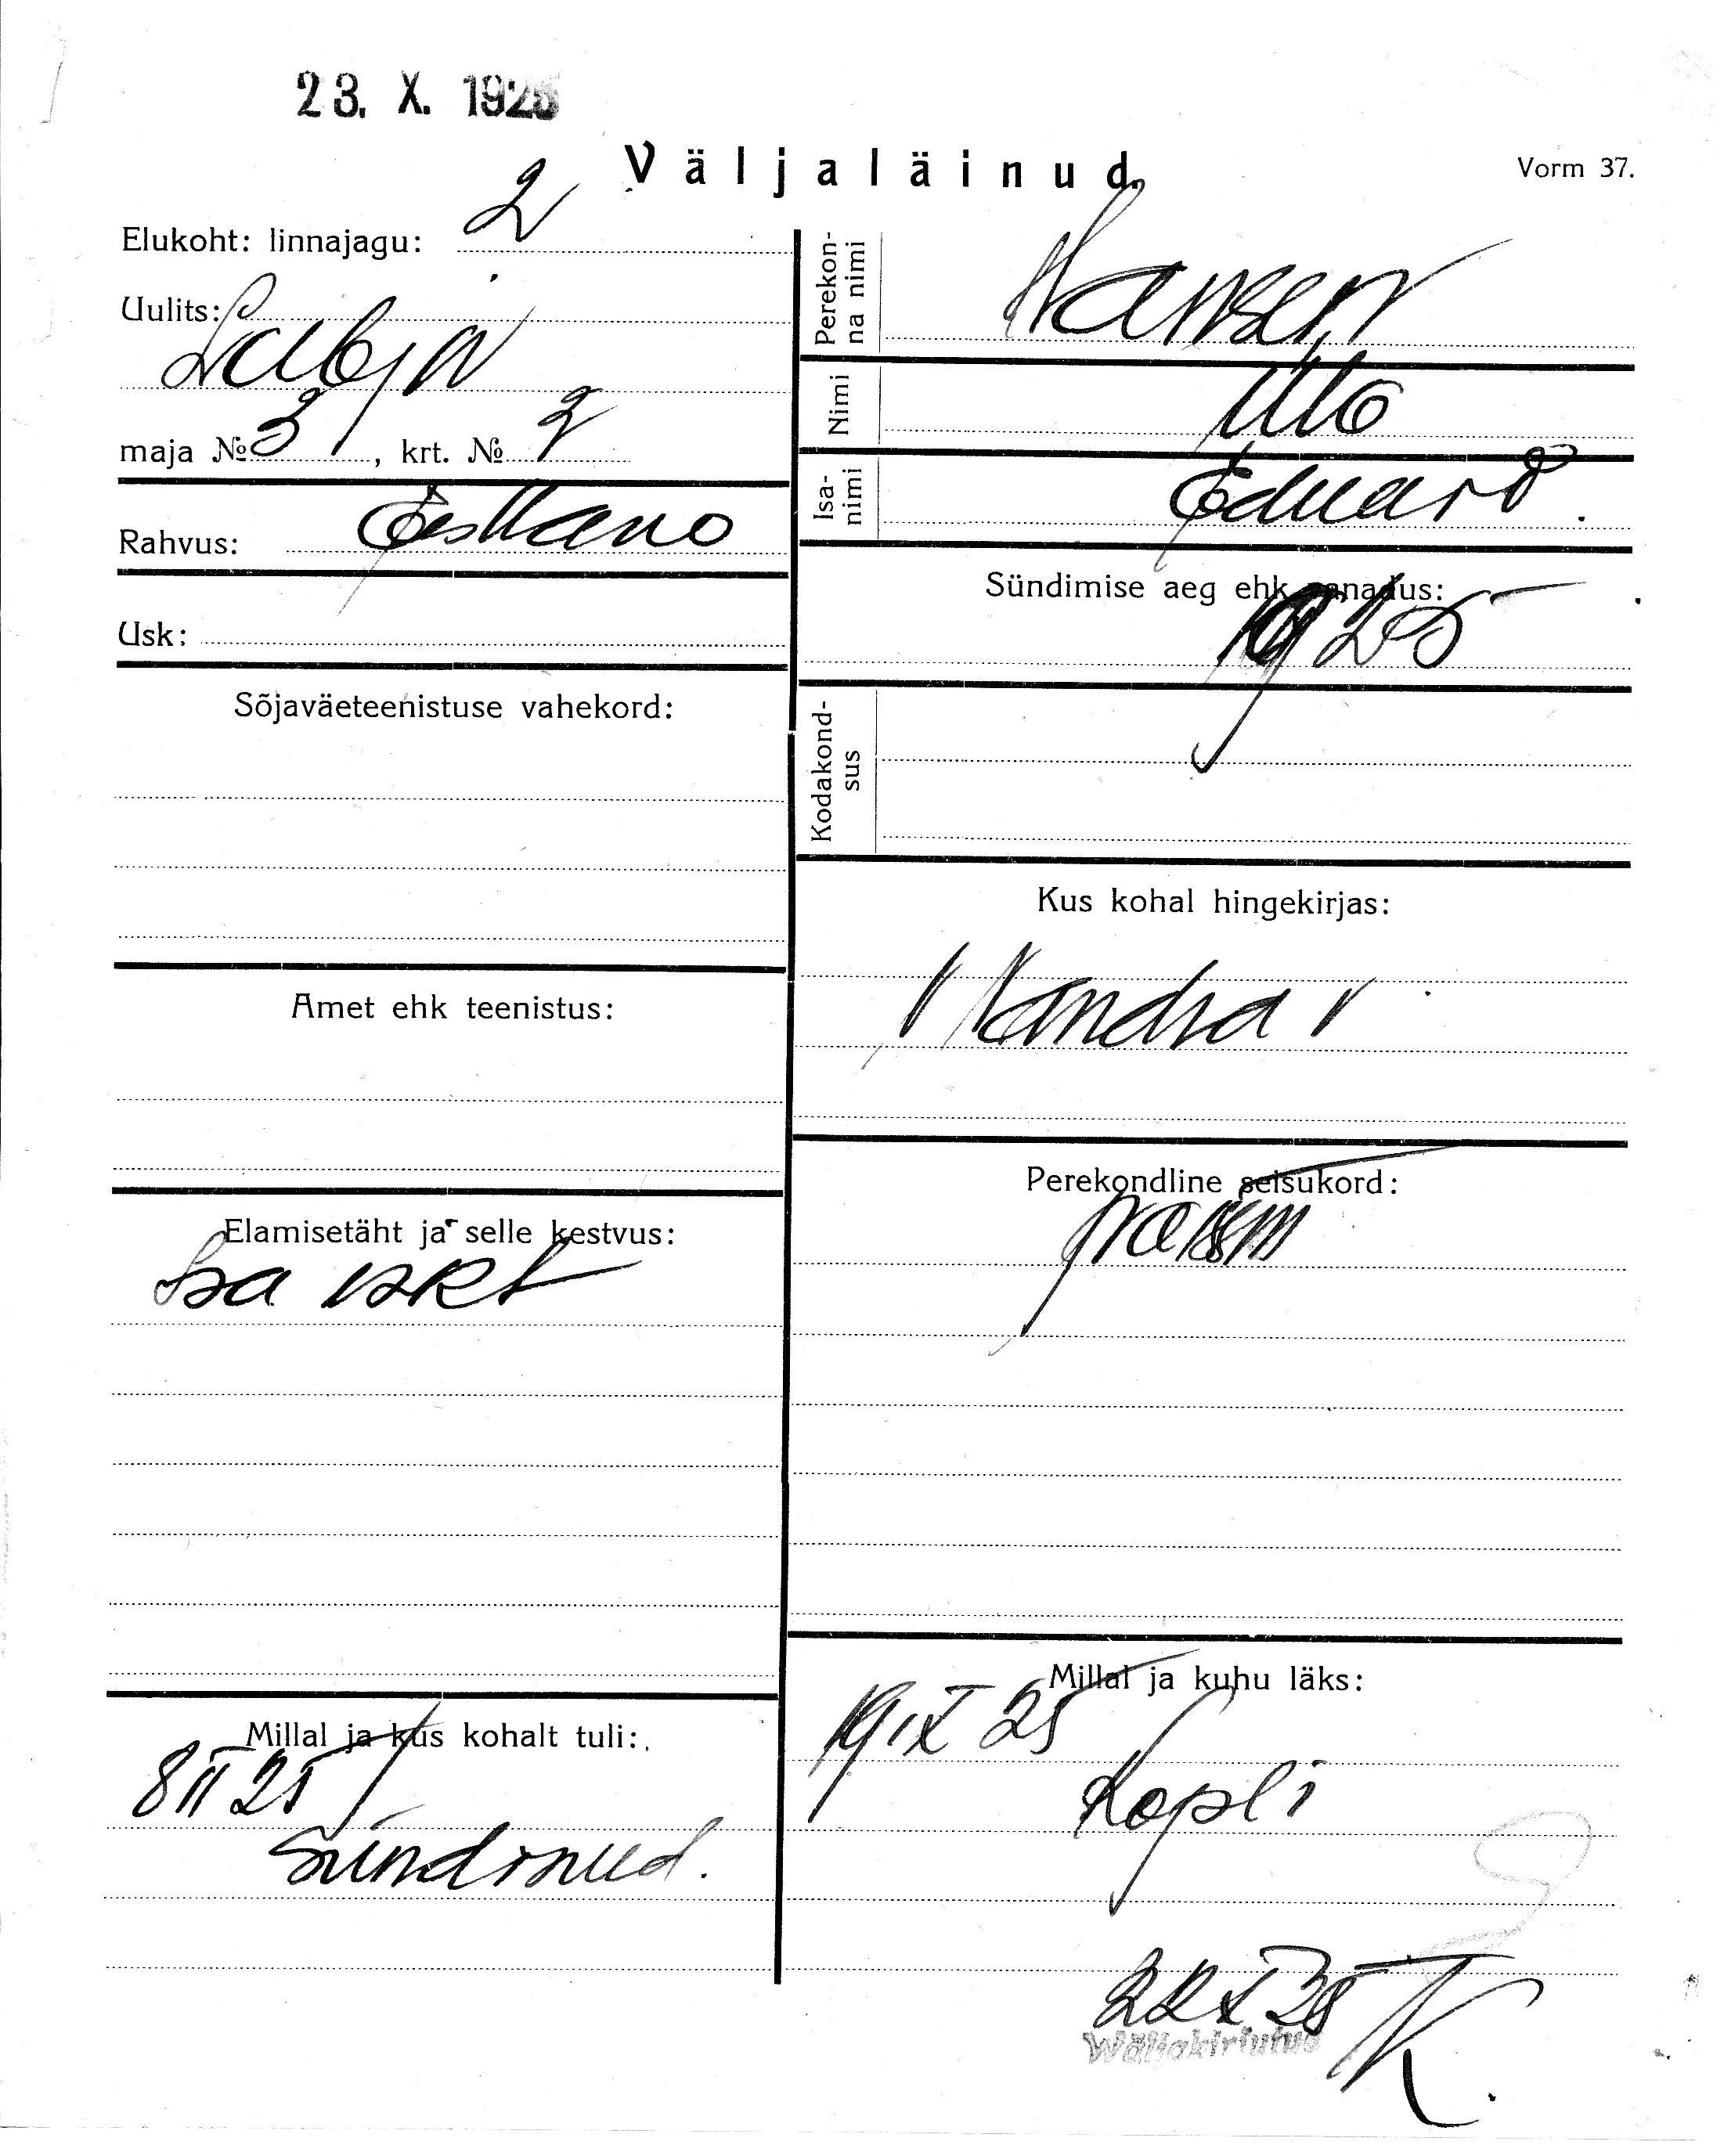 23. X. 1925
Väljaläinud.
Vorm 37.
Elukoht: linnajagu: 2
Uulits:
maja № 3, krt. № 2
Rahvus: Eestlane
Usk:
Sõjaväeteenistuse vahekord:
Amet ehk teenistus:
Elamisetäht ja selle kestvus:
Isa
Millal ja kus kohalt tuli:
8 II 25
Sündinud.
Perekonna nimi Hansen
Nimi
Isanimi Eduard.
Sündimise aeg ehk vanadus:
1925
Kodakondsus
Kus kohal hingekirjas:
Perekondline seisukord:
Millal ja kuhu läks:
19 IX 25
Kopli
Wäljakirjutud